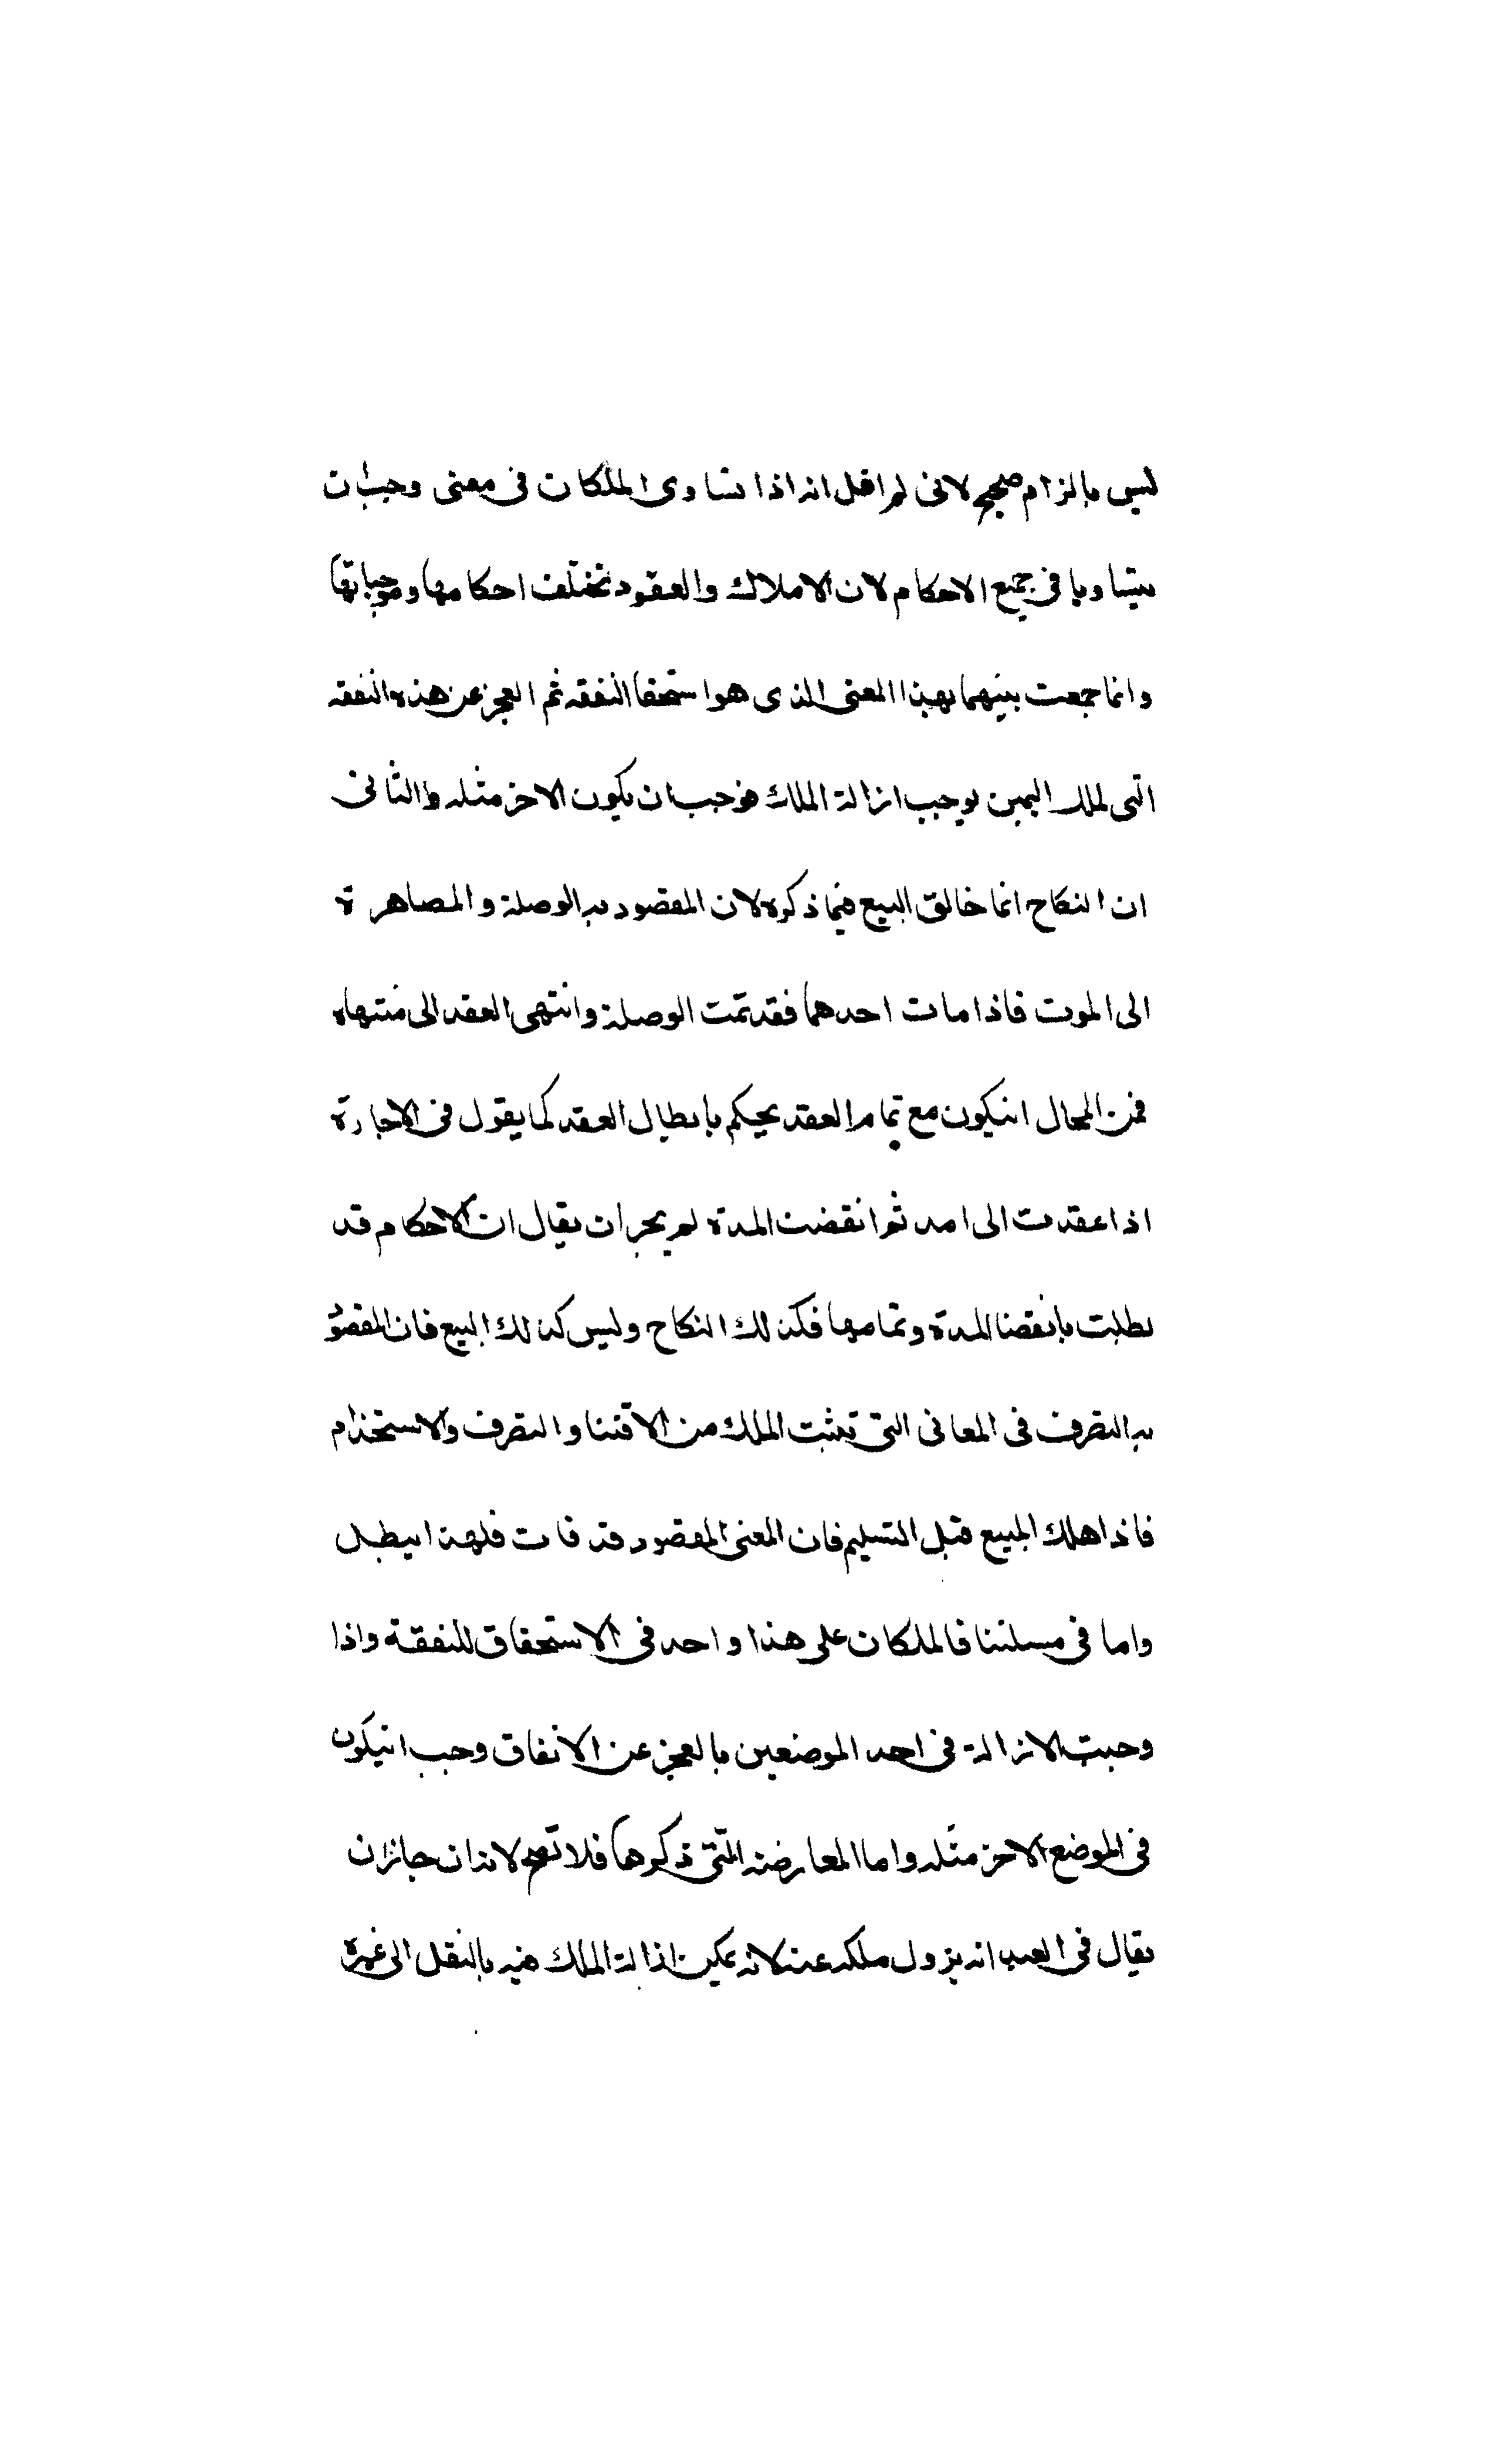 ليس بالزام صحيح لانى لم اقل انه اذا تساوى الملكان فى معنى وجب ان
يتساويا فى جميع الاحكام لان الاملاك والعقود تختلف احكامها وموجباتها
وانما جمعت بينهما بهذا المعنى الذى هو استحقا النفقه ثم العجز عن هذه النفقه
التى لملك اليمين يوجب ازالة الملك فوجب ان يكون الاخر مثله والثانى
ان النكاح انما خالف البيع فيما ذكره لان المقصود به الوصلة والمصاهرة
الى الموت فاذا مات احدهما فقد تمت الوصلة وانتهى العقد الى منتهاه
فمن المحال انيكون مع تمام العقد يحكم بابطال العقد كما يقول فى الاجارة
اذا عقدت الى امد ثم انقضت المدة لم يجز ان يقال ان الاحكام قد
بطلت بانقضا المدة وتمامها فكذلك النكاح وليس كذلك البيع فان المقصود
به التصرف فى المعانى التى تثبت الملك من الاقتنا والتصرف والاستخذام
فاذا هلك المبيع قبل التسليم فان المعنى المقصود قد فات فلهذا يبطل
واما فى مسلتنا فالملكان على هذا واحد فى الاستحقاق للنفقة واذا
وجبت الازالة فى احد الموضعين بالعجز عن الانفاق وجب انيكون
فى الموضع الاخر مثله واما المعارضه التى ذكرها فلا تصح لانه ان جاز ان
يقال فى العبد انه يزول ملكه عنه لانه يمكن ازالة الملك فيه بالنقل الى غيره